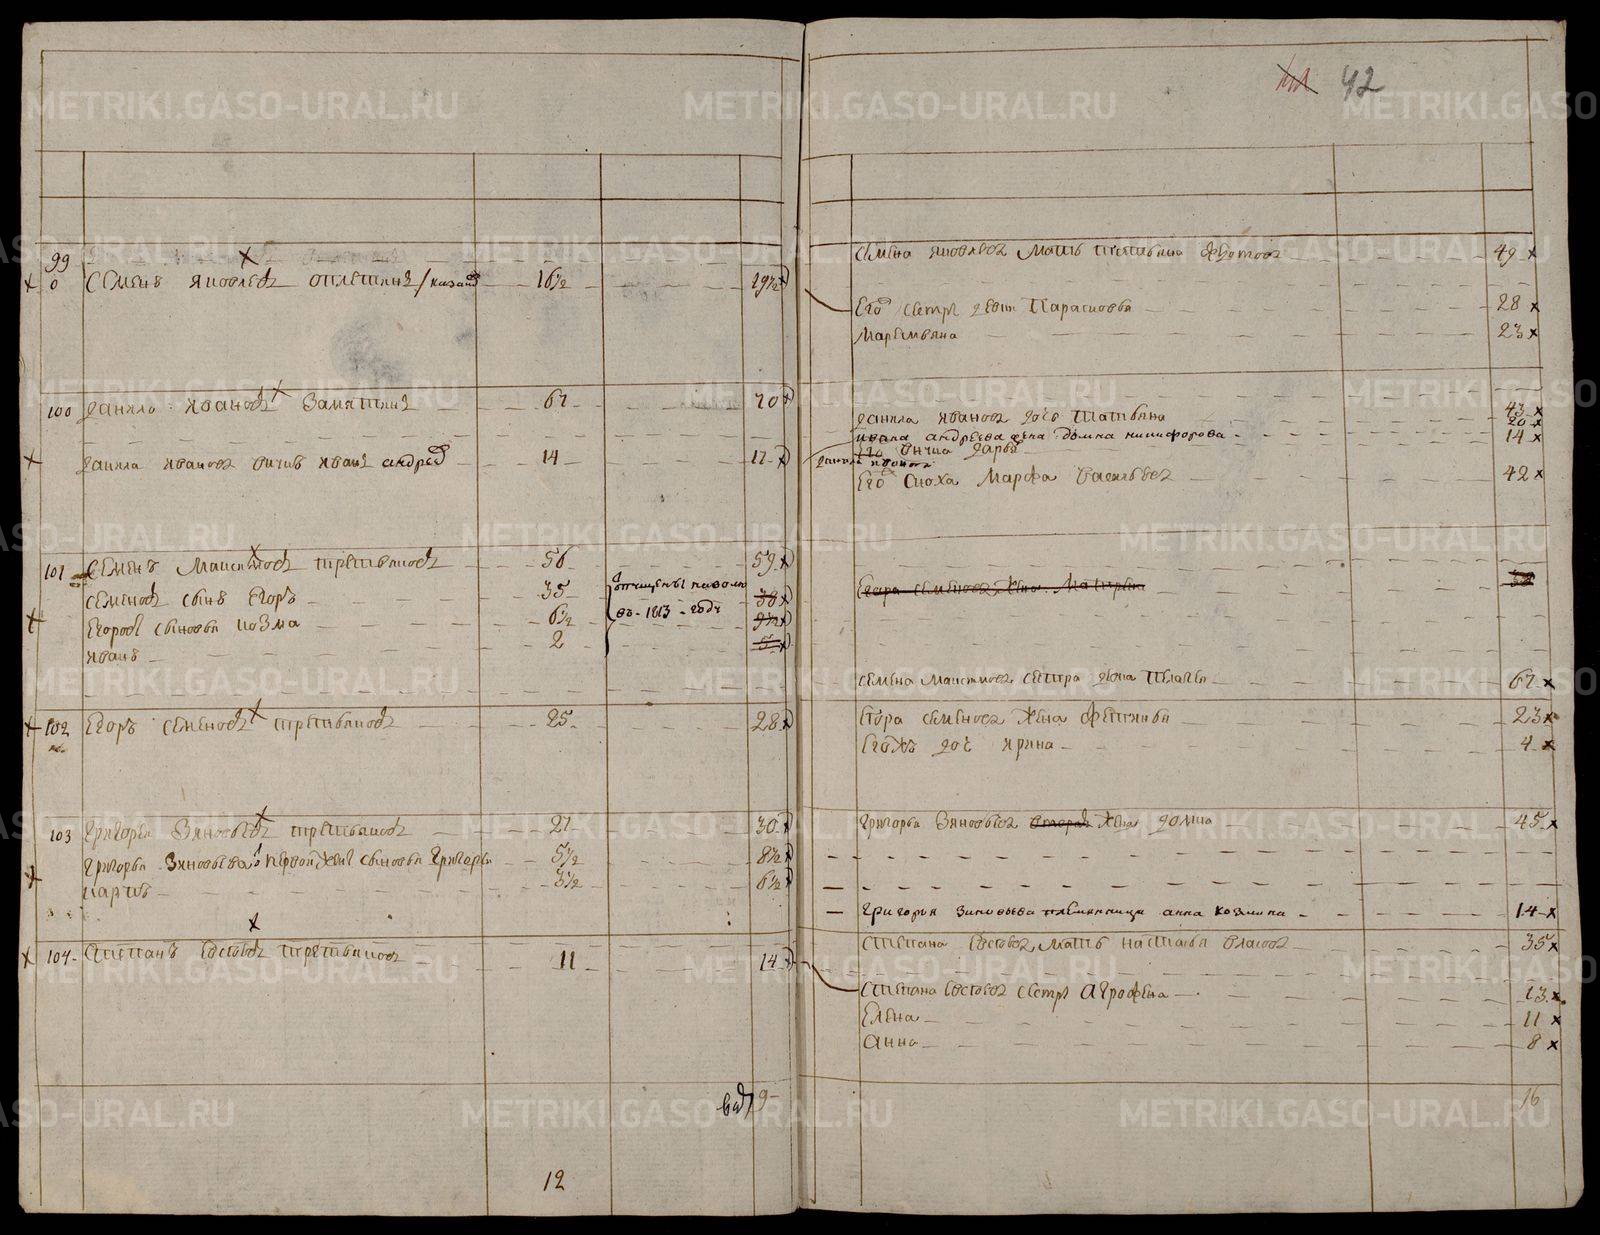 42
99
Семенъ Яковлевъ 16½ 19½
100 Данило Ивановъ Замятинъ 67 70
Данила Иванова внукъ Иванъ Андреевъ 14 17
101 Семенъ Максимовъ Третьяковъ 56 59
Семеновъ сынъ Егоръ 35 38
въ 1813 годѣ
Егоровы сыновья Козма 6½ 9½
Иванъ 2 5
102 Егоръ Семеновъ Третьяковъ 25 28
103 Григорей Зиновьевъ Третьяковъ 27 30
Григорья Зиновьева первой жены сыновья Григорей 5½ 8½
Карпъ 3½ 6½
104 Степанъ Третьяковъ 11 14
9
12
Семена Яковлева мать Татьяна Федотова 49
Его сестры девки Парасковья 28
Маремьяна 23
Данила Иванова дочь Татьяна 43
Ивана Андреева жена Домна Никифорова 20
внука Дарья 14
Данила Иванова
Его сноха Марфа Васильева 42
Егора Семенова жена Матрена
Семена Максимова сестра Пелагея 67
Егора Семенова жена Фетинья 23
Егожъ дочь Ирина 4
Григорья Зиновьева вторая жена Домна 45
Григорья Зиновьева племянница Анна Козмина 14
Степана мать Наталья Власова 35
Степана сестры Агрофена 13
Елена 11
Анна 8
16
METRIKI.GASO-URAL.RU